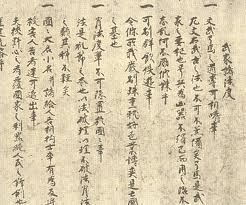 武家諸法度
一 文武弓馬之道專可相嗜事
左文右武古之法也不可不兼備矣弓馬是武
家之要枢也号兵為凶器不得已而用之治不
忘乱何不励修錬乎
一 可制群飲佚遊事
令條所載厳制殊重耽好色業博奕是亡国
之基也
一 背法度輩不可隠置於國々事
法是礼節之本也以法破理以理不破法背法
之類其科不軽矣
一 國々大名小名并諸給人各々相抱士卒有為反逆
殺害人告者速可追出事
夫挟野心之者為覆國家之利器絶人民之鋒釼也